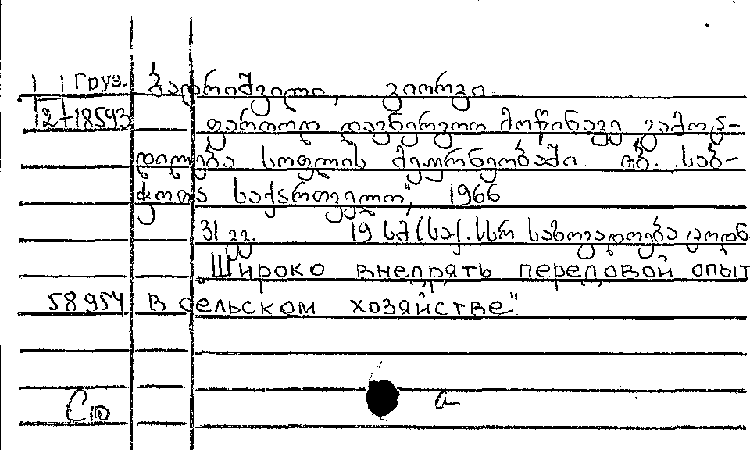 Груз. ბადრიშვილი, გიორგი.
12-18593 ფართოდ დავნერგოთ მოწინავე გამოც-
დილება სოფლის მეურნეობაში. თბ. „საბ-
ჭოთა საქართველო", 1966
31 გვ. 19 სმ (საქ. სსრ საზოგადოება ცოდნ
„Широко внедрять передовой опыт
58954 в сельском хозяйстве".
a